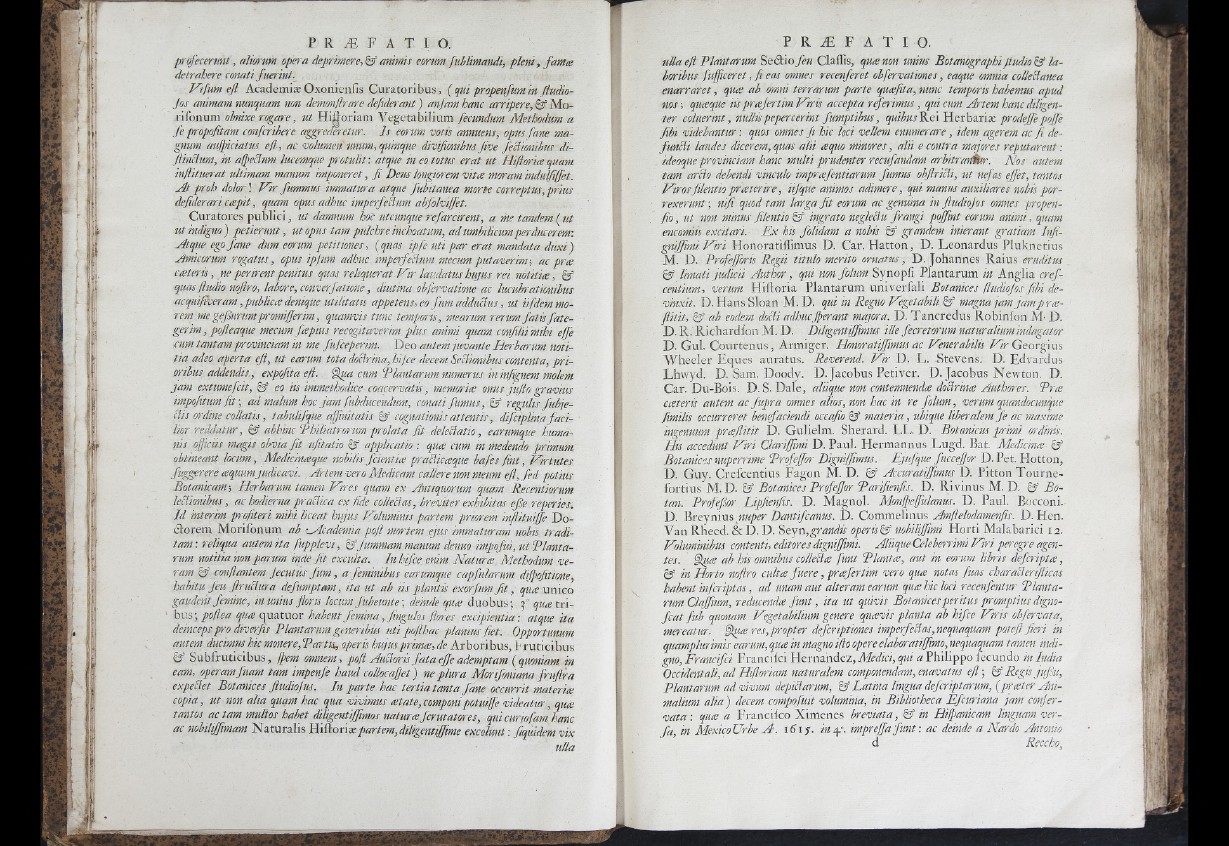 PRÆFATIO.
profecerunt, aliorum opera deprimere, & animis eorum sublimandi, pleni, famæ
detrahere conati fuerint.
Visum est Academiæ Oxoniensis Curatoribus, (qui propensum in studio-
sos animam nunquam non demonstrare desiderant) ansam hanc arripere, & Mo-
risonum obnixe rogare, ut Historiam Vegetabilium secundum Methodum a
se propositam conscribere aggrederetur. Is eorum votis annuens, opus sane ma-
gnum auspiciatus est, ac volumen unum, quinque divisionibus sive sectionibus di-
stinctum, in aspectum lucemque protulit: atque in eo totus erat ut Historiæ quam
instituerat ultimam manum imponeret, si Deus longiorem vitæ moram indulsisset.
At proh dolor! Vir summus immatura atque subitanea morte correptus, prius
desiderari cœpit, quam opus adhuc imperfectum absolvisset.
Curatores publici, ut damnum hoc utcunque resarcirent, a me tandem (ut
ut indigno) petierunt, ut opus tam pulchre inchoatum, ad umbilicum perducerem:
Atque ego sane dum eorum petitiones, (quas ipse uti par erat mandata duxi)
Amicorum rogatus, opus ipsum adhuc imperfectum mecum putaverim; ac præ
cæteris, ne perirent penitus quas reliquerat Vir laudatus hujus rei notitiæ, &
quas studio nostro, labore, conversatione, diutina observatione ac lucubrationibus
acquisiveram, publicæ denique utilitatis appetens, eo sum adductus, ut iisdem mo-
rem me gesturum promiserim, quamvis tunc temporis, mearum rerum satis sate-
gerim, posteaque mecum sæpius recogitaverim plus animi quam consilii mihi esse
cum tantam provinciam in me susceperim. Deo autem juvante Herbarum noti-
tia adeo aperta est, ut earum tota doctrina, hisce decem Sectionibus contenta, pri-
oribus addendis, exposita est. Qua cum Plantarum numerus in insignem molem
jam extumescit, & eo iis immethodice coacervatis, memoriæ onus justo gravius
impositum sit; ad malum hoc jam subducendum, conati sumus, & regulis subje-
ctis ordine collatis, tabulisque affinitatis & cognationis attentis, disciplina faci-
lior reddatur, & abhinc Philiatrorum prolata sit delectatio, earumque huma-
nis officiis magis obvia sit usitatio & applicatio: quæ cum in medendo primum
obtineant locum, Medicinæque nobilis scientiæ practicæque bases sint, Virtutes
suggerere æquum judicavi. Artem vero Medicam callere non meum est, sed potius
Botanicam; Herbarum tamen Vires quam ex Antiquorum quam Recentiorum
lectionibus, ac hodierna practica ex fide collectas, breviter exhibitas esse reperies.
Id interim profiteri mihi liceat hujus Voluminis partem priorem instituisse Do-
ctorem Morisonum ab Academia post mortem ejus immaturam nobis tradi-
tam: reliqua autem ita supplevi, & summam manum denuo imposui, ut Planta-
rum notitia non parum inde sit exculta. In hisce enim Naturæ, Methodum ve-
ram & constantem secutus sum, a seminibus earumque capsularum dispositione,
habitu seu structura desumptam, ita ut ab iis plantis exorsum sit, quæ unico
gaudent semine, in unius floris locum subeunte; deinde quæ duobus; 3° quæ tri-
bus; postea quæ quatuor habent semina, singulos flores excipientia: atque ita
deinceps pro diversis Plantarum generibus uti posthac planum fiet. Opportunum
autem ducimus hic monere, Partis, operis hujus primæ, de Arboribus, Fruticibus
& Subfruticibus, spem omnem, post Auctoris fata esse ademptam (quoniam in
eam, operam suam tam impense haud collocasset) ne plura Morisoniana frustra
expectet Botanices studiosus. In parte hac tertia tanta sane occurrit materiæ
copia, ut non alia quam hac qua vivimus ætate, componi potuisse videatur, quæ
tantos ac tam multos habet diligentissimos naturæ scrutatores, qui curiosam hanc
ac nobilissimam Naturalis Historiæ partem, diligentissime excolunt: siquidem vix
ulla
PRÆFATIO.
ulla est Plantarum Sectio seu Classis, quæ non unius Botanographi studio & la-
boribus sufficeret, si eas omnes recenseret observationes, eaque omnia collectanea
enarraret, quæ ab omni terrarum parte quæsita, nunc temporis habemus apud
nos; quæque iis præsertim Viris accepta referimus, qui cum Artem hanc diligen-
ter coluerint, nullis pepercerint sumptibus, quibus Rei Herbariæ prodesse posse
sibi videbantur: quos omnes si hic loci vellem enumerare, idem agerem ac si de-
functi laudes dicerem, quas alii æquo minores, alii e contra majores reputarent:
adeoque provinciam hanc multi prudenter recusandam arbitrantur. Nos autem
tam arcto debendi vinculo impræsentiarum sumus obstricti, ut nefas esset, tantos
Viros silentio præterire, iisque animos adimere, qui manus auxiliares nobis por-
rexerunt; nisi quod tam larga sit eorum ac genuina in studiosos omnes propen-
sio, ut non minus silentio & ingrato neglectu frangi possint eorum animi, quam
encomiis excitari. Ex his solidam a nobis & grandem inierant gratiam Insi-
gnissimi Viri Honoratissimus D. Car. Hatton, D. Leonardus Pluknetius
M. D. Professoris Regii titulo merito ornatus, D. Johannes Raius eruditus
& limati judicii Author, qui non solum Synopsi Plantarum in Anglia cres-
centium, verum Historia Plantarum universali Botanices studiosos sibi de-
vinxit. D. Hans Sloan M. D. qui in Regno Vegetabili & magna jam jam præ-
stitit, & ab eodem docti adhuc sperant majora. D. Tancredus Robinson M. D.
D. R. Richardson M. D. Diligentissimus ille secretorum naturalium indagator
D. Gul. Courtenus, Armiger. Honoratissimus ac Venerabilis Vir Georgius
Wheeler Eques auratus. Reverend. Vir D. L. Stevens. D. Edvardus
Lhwyd. D. Sam. Doody. D. Jacobus Petiver. D. Jacobus Newton. D.
Car. Du-Bois. D. S. Dale, aliique non contemnendæ doctrinæ Authores. Præ
cæteris autem ac supra omnes alios, non hac in re solum, verum quandocunque
similis occurreret benefaciendi occasio & materia, ubique liberalem se ac maxime
ingenuum præstitit D. Gulielm. Sherard. LL. D. Botanicus primi ordinis.
His accedunt Viri Clarissimi D. Paul. Hermannus Lugd. Bat. Medicinæ &
Botanices nuperrime Professor Dignissimus. Ejusque successor D. Pet. Hotton,
D. Guy. Crescentius Fagon M. D. & Accuratissimus D. Pitton Tourne-
fortius M. D. & Botanices Professor Parisiensis. D. Rivinus M. D. & Bo-
tan. Professor Lipsiensis. D. Magnol. Monspessulanus. D. Paul. Bocconi.
D. Breynius nuper Dantiscanus. D. Commelinus Amstelodamensis. D. Hen.
Van Rheed. & D. D. Seyn, grandis operis & nobilissimi Horti Malabarici 12.
Voluminibus contenti, editores dignissimi. Aliique Celeberrimi Viri peregre agen-
tes. Quæ ab his omnibus collectæ sunt Plantæ, aut in eorum libris descriptæ,
& in Horto nostro cultæ fuere, præsertim vero quæ notas suas characteristicas
habent inscriptas, ad unam aut alteram earum quæ hic loci recensentur Planta-
rum Classium, reducendæ sunt, ita ut quivis Botanices peritus promptius digno-
scat sub quonam Vegetabilium genere quævis planta ab hisce Viris observata,
mereatur. Quæ res, propter descriptiones imperfectas, nequaquam potest fieri in
quamplurimis earum, quæ in magno isto opere elaboratissimo, nequaquam tamen indi-
gno, Francisci Francisci Hernandez, Medici, qui a Philippo secundo in India
Occidentali, ad Historiam naturalem componendam, enavatus est; & Regis jussu,
Plantarum ad vivum depictarum, & Latina lingua descriptarum, (præter Ani-
malium alia) decem composuit volumina, in Bibliotheca Escuriana jam conser-
vata: quæ a Francisco Ximenes breviata, & in Hispanicam linguam ver-
sa, in Mexico Urbe A. 1615. in 4°. impressa sunt: ac deinde a Nardo Antonio
d Reccho,